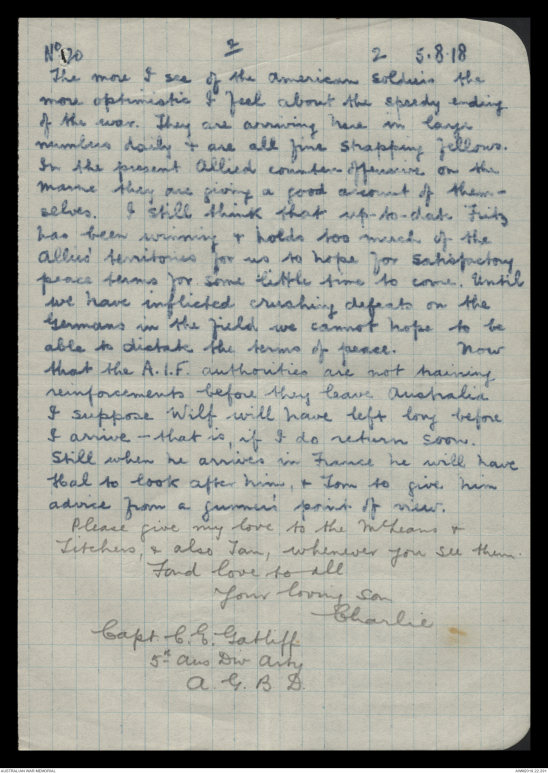 No 20 2 2 5.8.18
The more I see of the American soldiers the
more optimistic I feel about the speedy ending
of the war. They are arriving here in large
numbers daily & are all fine strapping fellows.
In the present Allied counter offensive on the
Marne they are giving a good account of them-
selves. I still think that up-to-date Fritz
has been winning & holds too much of the
Allies' territories for us to hope for satisfactory
peace terms for some little time to come. Until
we have inflicted crushing defeats on the
Germans in the field we cannot hope to be
able to dictate the terms of peace. Now
that the A.I.F. authorities are not training
reinforcements before they leave Australia
I suppose Wilf will have left long before
I arrive - that is, if I do return soon.
Still when he arrives in France he will have
Hal to look after him, & Tom to give him
advice from a gunner's point of view.
Please give my love to the McLeans &
Titchers, & also Ian, whenever you see them.
Fond love to all
Your loving son
Charlie
Capt. C. E. Gatliff
5th Aus Div Arty
A. G. B D.
AUSTRALIAN WAR MEMORIAL